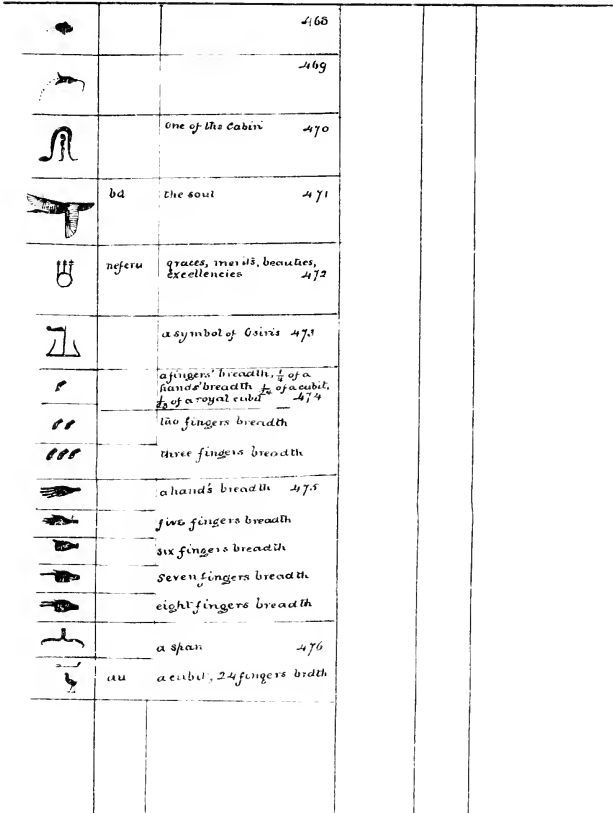 468
469
One of the Cabiri 470
ba the soul 471
neferu graces, merits, beauties,
excellencies 472
a symbol of Osiris 473
a fingers' breadth, 1/4 of a
hands' breadth 1/24 of a cubit,
1/28 of a royal cubit 474
two fingers breadth
three fingers breadth
a hand's breadth 475
five fingers breadth
six fingers breadth
seven fingers breadth
eight fingers breadth
a span 476
au a cubit, 24 fingers brdth